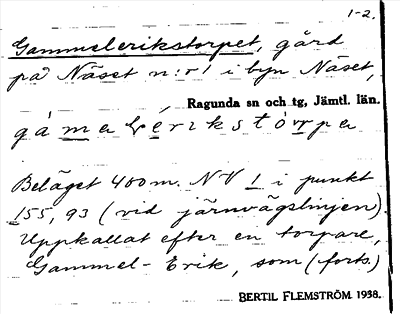 1-2.
Gammelerikstorpet, gård
på Näset n:r 1 i byn Näset,
Ragunda sn och tg, Jämtl. län.
gámalérikstórpa
Beläget 400 m. NV 1 i punkt
155,93 (vid järnvägslinjen).
Uppkallat efter en torpare,
Gammel-Erik, som (forts.)
BERTIL FLEMSTRÖM 1938.